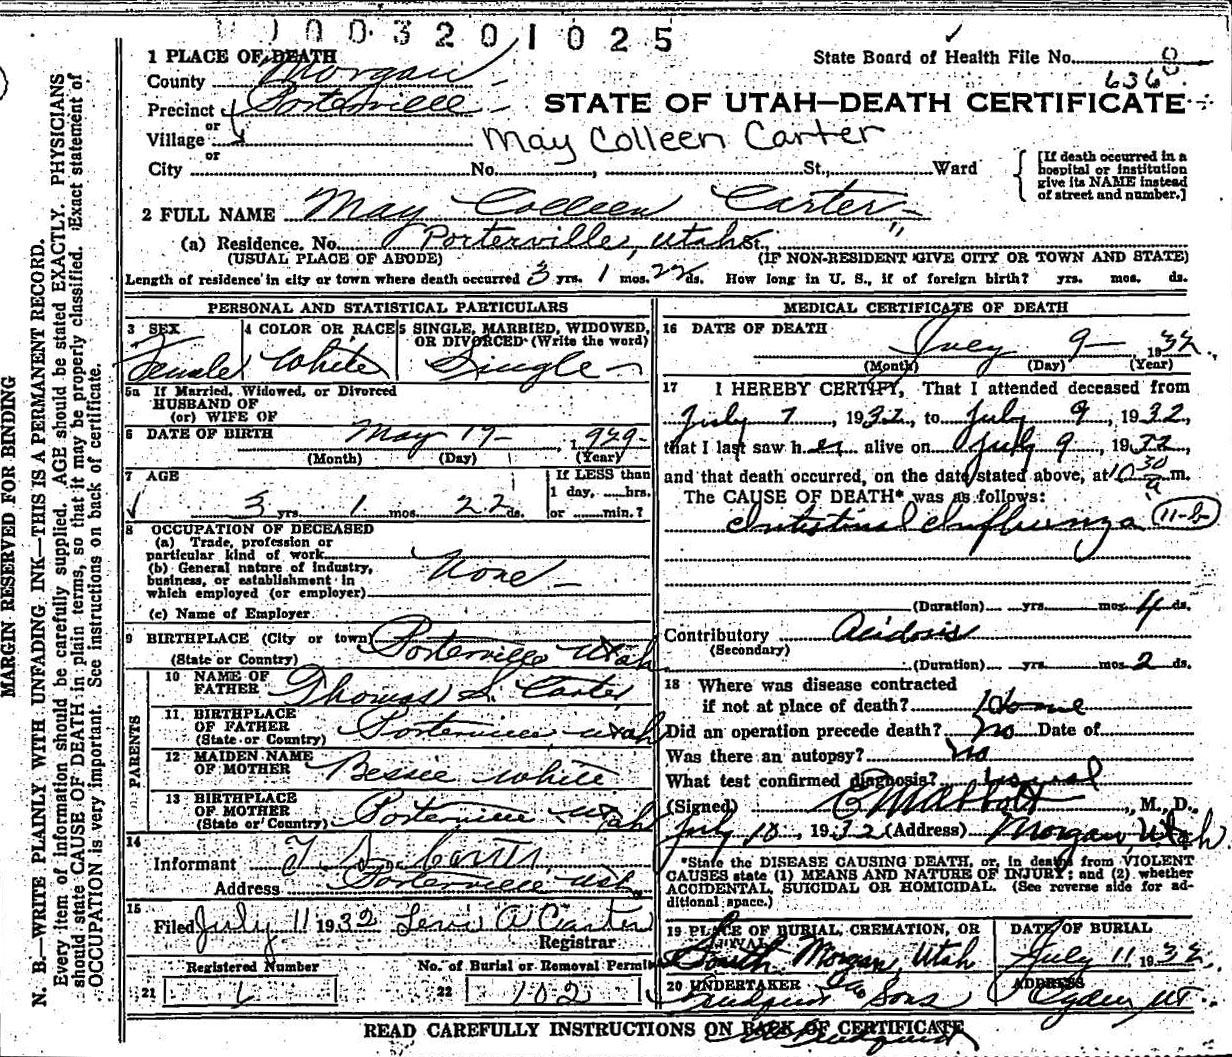 1003201025
1 PLACE OF DEATH
State Board of Health File No.
County Morgan
636
Precinct Porterville
STATE OF UTAH—DEATH CERTIFICATE
or
Village
May Colleen Carter
or
City No. , St., Ward
[If death occurred in a hospital or institution give its NAME instead of street and number.]
2 FULL NAME May Colleen Carter
(a) Residence. No. Porterville, Utah St.,
(USUAL PLACE OF ABODE) (IF NON-RESIDENT GIVE CITY OR TOWN AND STATE)
Length of residence in city or town where death occurred 3 yrs. 1 mos. 22 ds. How long in U. S., if of foreign birth? yrs. mos. ds.
PERSONAL AND STATISTICAL PARTICULARS
3 SEX
Female
4 COLOR OR RACE
White
5 SINGLE, MARRIED, WIDOWED, OR DIVORCED (Write the word)
Single
5a If Married, Widowed, or Divorced
HUSBAND OF
(or) WIFE OF
6 DATE OF BIRTH May 17 1929
(Month) (Day) (Year)
7 AGE
3 yrs. 1 mos. 22 ds.
If LESS than
1 day, ......hrs.
or ......min.?
8 OCCUPATION OF DECEASED
(a) Trade, profession or
particular kind of work
(b) General nature of industry,
business, or establishment in
which employed (or employer)
None
(c) Name of Employer
9 BIRTHPLACE (City or town) Porterville Utah
(State or Country)
PARENTS
10 NAME OF FATHER Thomas S. Carter
11 BIRTHPLACE OF FATHER Porterville Utah
(State or Country)
12 MAIDEN NAME OF MOTHER Bessie White
13 BIRTHPLACE OF MOTHER Porterville Utah
(State or Country)
14
Informant T. S. Carter
Address Porterville Utah
15
Filed July 11 1932 Levi A Carter
Registrar
Registered Number
21 6
No. of Burial or Removal Permit
22 102
MEDICAL CERTIFICATE OF DEATH
16 DATE OF DEATH
July 9 1932
(Month) (Day) (Year)
17 I HEREBY CERTIFY, That I attended deceased from
July 7, 1932, to July 9, 1932,
that I last saw her alive on July 9, 1932,
and that death occurred, on the date stated above, at 10 30 a m.
The CAUSE OF DEATH* was as follows:
Intestinal Influenza 11-b
(Duration) yrs. mos. 4 ds.
Contributory Acidosis
(Secondary)
(Duration) yrs. mos. 2 ds.
18 Where was disease contracted
if not at place of death? Home
Did an operation precede death? no Date of
Was there an autopsy? no
What test confirmed diagnosis? usual
(Signed) Abbott, M. D.
July 10, 1932 (Address) Morgan, Utah
*State the DISEASE CAUSING DEATH, or, in deaths from VIOLENT
CAUSES state (1) MEANS AND NATURE OF INJURY; and (2) whether
ACCIDENTAL, SUICIDAL OR HOMICIDAL. (See reverse side for ad-
ditional space.)
19 PLACE OF BURIAL, CREMATION, OR
South Morgan, Utah
DATE OF BURIAL
July 11 1932
20 UNDERTAKER
& Sons
ADDRESS
Ogden, UT.
READ CAREFULLY INSTRUCTIONS ON BACK OF CERTIFICATE
MARGIN RESERVED FOR BINDING
N. B.—WRITE PLAINLY WITH UNFADING INK—THIS IS A PERMANENT RECORD.
Every item of information should be carefully supplied. AGE should be stated EXACTLY. PHYSICIANS
should state CAUSE OF DEATH in plain terms, so that it may be properly classified. Exact statement of
OCCUPATION is very important. See instructions on back of certificate.